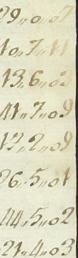 29,,0,,07
10,,7,,11
13,,6,,03
41,,7,,09
12,,2,,09
26,,5,,01
44,,5,,02
21,,4,,03